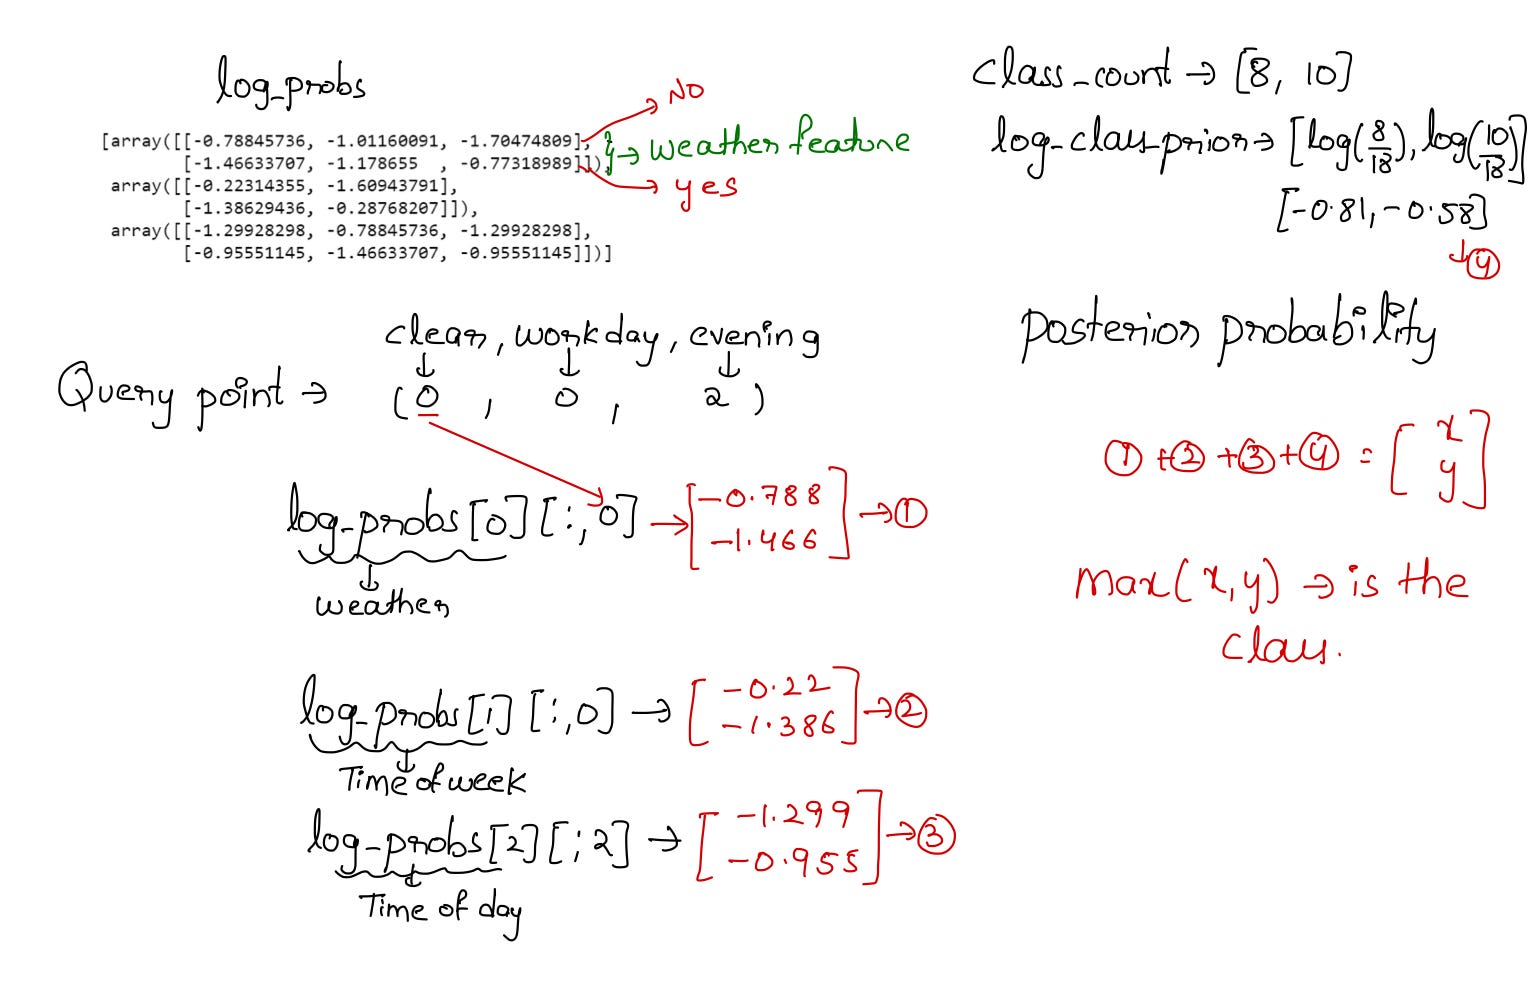 log_probs
[array([[-0.78845736, -1.01160091, -1.70474809],
[-1.46633707, -1.178655 , -0.77318989]]),
array([[-0.22314355, -1.60943791],
[-1.38629436, -0.28768207]]),
array([[-1.29928298, -0.78845736, -1.29928298],
[-0.95551145, -1.46633707, -0.95551145]])]
→ No
} → weather feature
→ yes
class_count → [8, 10]
log_class_prior → [log(8/18), log(10/18)]
[-0.81, -0.58]
↓ ④
clear, workday, evening
↓ ↓ ↓
Query point → (0, 0, 2)
log_probs[0][:,0] → [-0.788
-1.466] → ①
↓
weather
log_probs[1][:,0] → [-0.22
-1.386] → ②
↓
Time of week
log_probs[2][:2] → [-1.299
-0.955] → ③
↓
Time of day
posterior probability
① + ② + ③ + ④ = [x
y]
max(x,y) → is the
class.